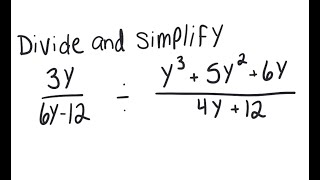 Divide and Simplify
3Y/(6Y-12) ÷ (Y³ + 5Y² + 6Y)/(4Y + 12)